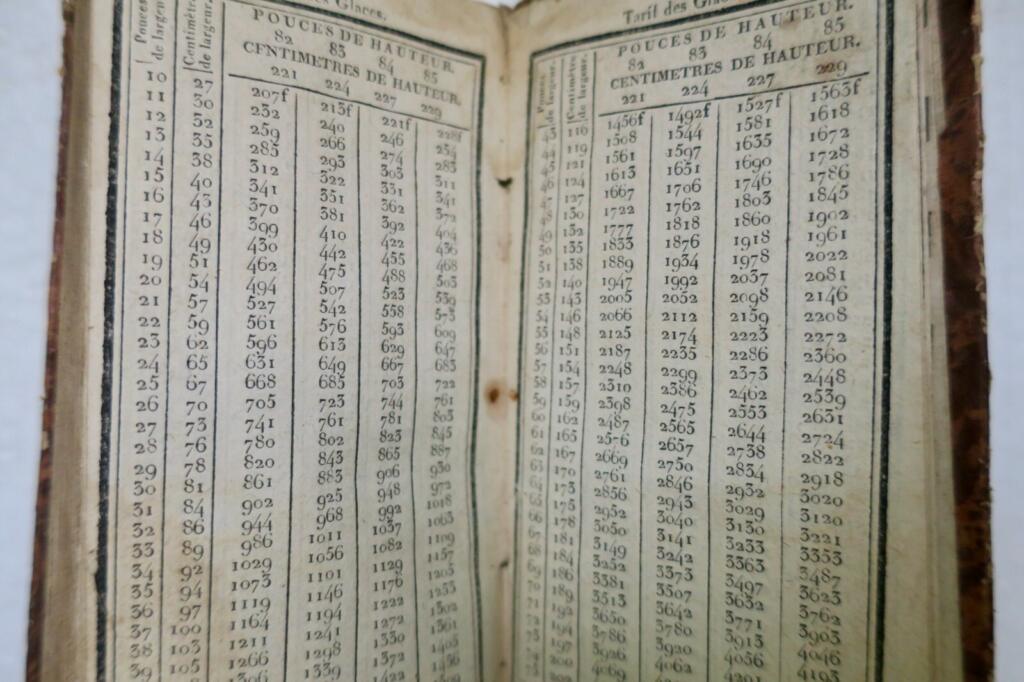 des Glaces.
Pouces de largeur.
Centimètre de largeur.
POUCES DE HAUTEUR.
82 83 84 85
CENTIMETRES DE HAUTEUR.
221 224 227 229
10 27 207f 213f 221f 228f
11 30 232 240 246 254
12 32 259 266 274 283
13 35 285 293 303 311
14 38 312 322 331 341
15 40 341 351 362 372
16 43 370 381 392 404
17 46 399 410 422 436
18 49 430 442 455 468
19 51 462 475 488 503
20 54 494 507 523 539
21 57 527 542 558 573
22 59 561 576 593 609
23 62 596 613 629 647
24 65 631 649 667 683
25 67 668 685 703 722
26 70 705 723 744 761
27 73 741 761 781 803
28 76 780 802 823 845
29 78 820 843 865 887
30 81 861 883 906 930
31 84 902 925 948 972
32 86 944 968 992 1018
33 89 986 1011 1037 1063
34 92 1029 1056 1082 1109
35 94 1073 1101 1129 1157
36 97 1119 1146 1176 1205
37 100 1164 1194 1222 1253
38 103 1211 1241 1272 1302
39 105 1266 1298 1330 1361
1306 1339 1372 1405
Tarif des
Pouces de largeur.
Centimètre de largeur.
POUCES DE HAUTEUR.
82 83 84 85
CENTIMETRES DE HAUTEUR.
221 224 227 229
43 116 1456f 1492f 1527f 1563f
44 119 1508 1544 1581 1618
45 121 1561 1597 1635 1672
46 124 1613 1651 1690 1728
47 127 1667 1706 1746 1786
48 130 1722 1762 1803 1845
49 132 1777 1818 1860 1902
50 135 1833 1876 1918 1961
51 138 1889 1934 1978 2022
52 140 1947 1992 2037 2081
53 143 2005 2052 2098 2146
54 146 2066 2112 2159 2208
55 148 2125 2174 2223 2272
56 151 2187 2235 2286 2360
57 154 2248 2299 2373 2448
58 157 2310 2386 2462 2539
59 159 2398 2475 2553 2631
60 162 2487 2565 2644 2724
61 165 2576 2657 2738 2822
62 167 2669 2750 2834 2918
63 170 2761 2846 2932 3020
64 173 2856 2943 3029 3120
65 175 2952 3040 3130 3221
66 178 3050 3141 3233 3353
67 181 3149 3242 3363 3487
68 184 3252 3373 3497 3623
69 186 3381 3507 3632 3762
70 189 3513 3642 3771 3903
71 192 3650 3780 3913 4046
72 194 3786 3920 4056 4193
73 197 3926 4062 4201
200 4069